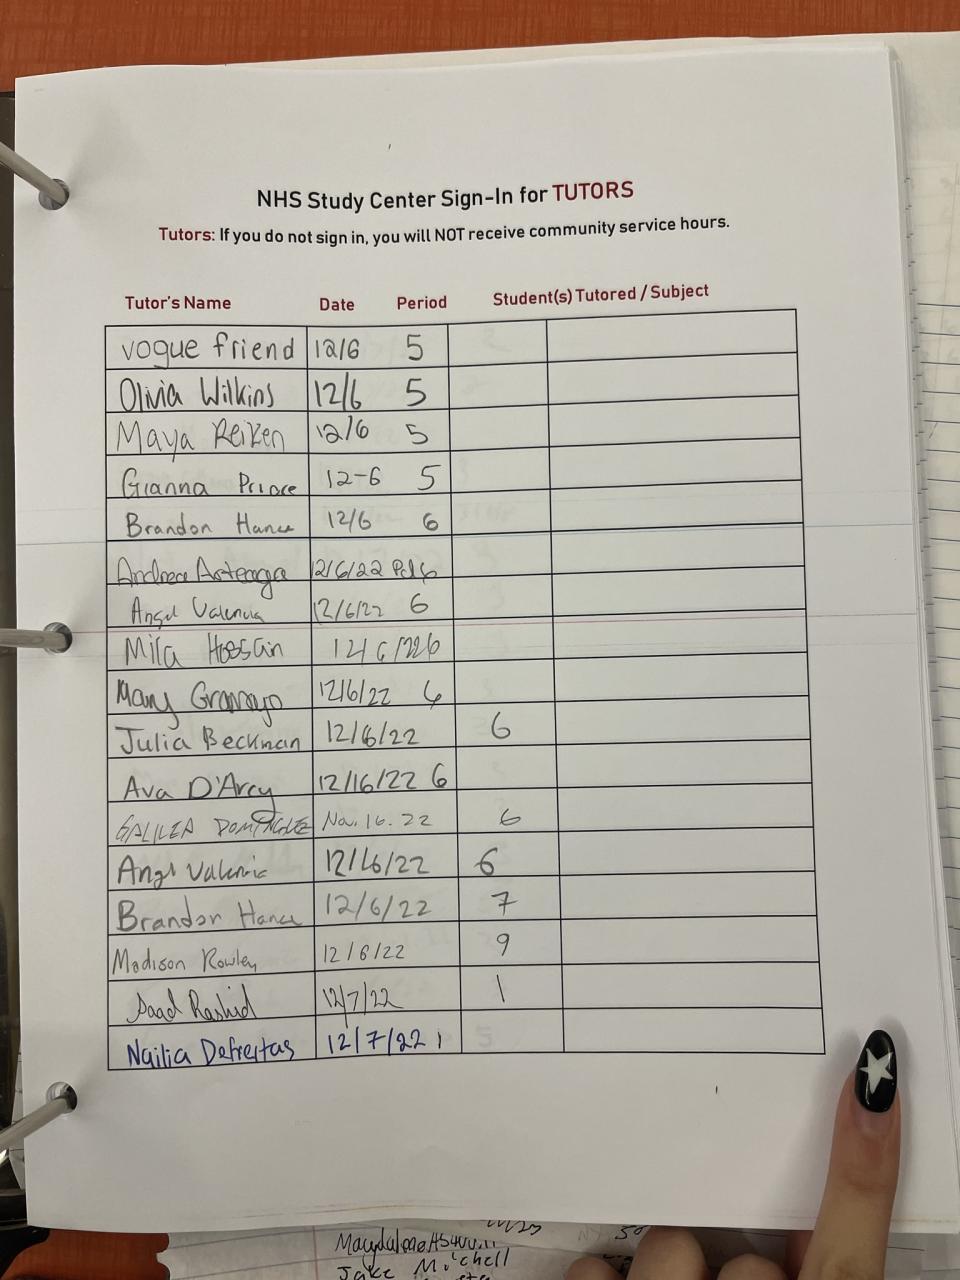 NHS Study Center Sign-In for TUTORS
Tutors: If you do not sign in, you will NOT receive community service hours.
Tutor's Name Date Period Student(s) Tutored / Subject
vogue friend 12/6 5
Olivia Wilkins 12/6 5
Maya Reiken 12/6 5
Gianna Priore 12-6 5
Brandon Hance 12/6 6
Andrea Arteaga 12/6/22 Pd 6
Angel Valencia 12/6/22 6
Mila Hossain 12/6/22 6
Mary 12/6/22 6
Julia Beckman 12/6/22 6
Ava D'Arcy 12/16/22 6
GALILEA DOMINGUEZ Nov. 16. 22 6
Angel Valencia 12/6/22 6
Brandon Hance 12/6/22 7
Madison Rowley 12/6/22 9
Saad Rashid 12/7/22 1
Nailia Defreitas 12/7/22 1
Jake Mitchell